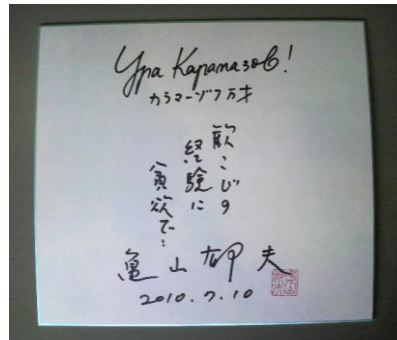 Ура Карамазов!
カラマーゾフ万才
歓こびの
経験に
貪欲で…
亀山郁夫
2010.7.10